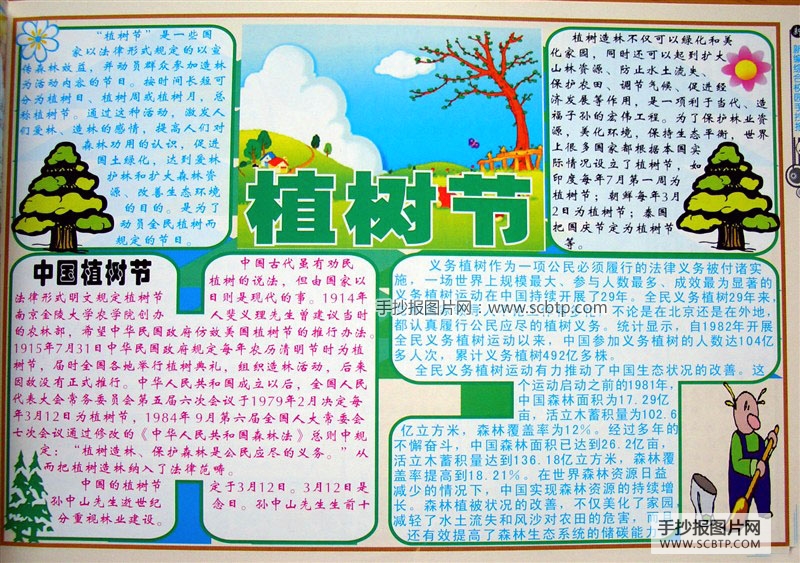 “植树节”是一些国
家以法律形式规定的以宣
传森林效益，并动员群众参加造林
为活动内容的节日。按时间长短可
分为植树日、植树周或植树月，总
称植树节。通过这种活动，激发人
们爱林、造林的感情，提高人们对
森林功用的认识，促进
国土绿化，达到爱林
护林和扩大森林资
源、改善生态环境
的目的。是为了
动员全民植树而
规定的节日。
植树节
植树造林不仅可以绿化和美
化家园，同时还可以起到扩大
山林资源、防止水土流失、
保护农田、调节气候、促进经
济发展等作用，是一项利于当代、造
福子孙的宏伟工程。为了保护林业资
源，美化环境，保持生态平衡，世界
上很多国家都根据本国实
际情况设立了植树节，如
印度每年7月第一周为
植树节；朝鲜每年3月
2日为植树节；泰国
把国庆节定为植树节
等。
中国植树节
中国古代虽有劝民
植树的说法，但由国家以
法律形式明文规定植树节日则是现代的事。1914年
南京金陵大学农学院创办人斐义理先生曾建议当时
的农林部，希望中华民国政府仿效美国植树节的推行办法。
1915年7月31日中华民国政府规定每年农历清明节时为植
树节，届时全国各地举行植树典礼，组织造林活动，后来
因故没有正式推行。中华人民共和国成立以后，全国人民
代表大会常务委员会第五届六次会议于1979年2月决定每
年3月12日为植树节，1984年9月第六届全国人大常委会
七次会议通过修改的《中华人民共和国森林法》总则中规
定：“植树造林、保护森林是公民应尽的义务。”从
而把植树造林纳入了法律范畴。
中国的植树节定于3月12日。3月12日是
孙中山先生逝世纪念日。孙中山先生生前十
分重视林业建设。
义务植树作为一项公民必须履行的法律义务被付诸实
施，一场世界上规模最大、参与人数最多、成效最为显著的
义务植树运动在中国持续开展了29年。全民义务植树29年来，
不论是在北京还是在外地，
都认真履行公民应尽的植树义务。统计显示，自1982年开展
全民义务植树运动以来，中国参加义务植树的人数达104亿
多人次，累计义务植树492亿多株。
全民义务植树运动有力推动了中国生态状况的改善。这
个运动启动之前的1981年，
中国森林面积为17.29亿
亩，活立木蓄积量为102.6
亿立方米，森林覆盖率为12%。经过多年的
不懈奋斗，中国森林面积已达到26.2亿亩，
活立木蓄积量达到136.18亿立方米，森林覆
盖率提高到18.21%。在世界森林资源日益
减少的情况下，中国实现森林资源的持续增
长。森林植被状况的改善，不仅美化了家园，
减轻了水土流失和风沙对农田的危害，而
还有效提高了森林生态系统的储碳能力
手抄报图片网：www.scbtp.com
手抄报图片网
WWW.SCBTP.COM